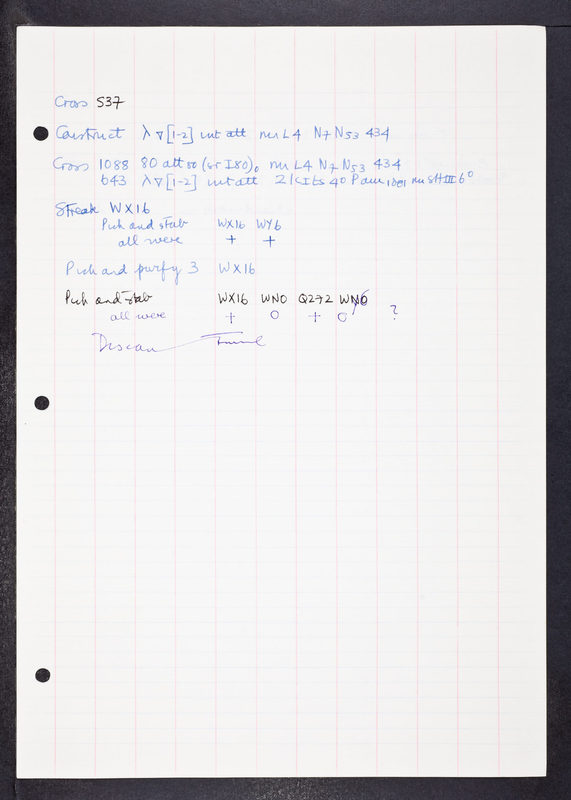 Cross 537
Construct λ ∇ [1-2] int att nin L4 N7 N53 434
Cross 1088 80 att 80 (or I80)o nin L4 N7 N53 434
643 λ ∇ [1-2] int att 21 cIts 40 P am1081 nin SHIII 6°
Streak WX16
Pick and stab WX16 WY6
all were + +
Pick and purify 3 WX16
Pick and stab WX16 WNO Q272
all were + O + O ?
Discard